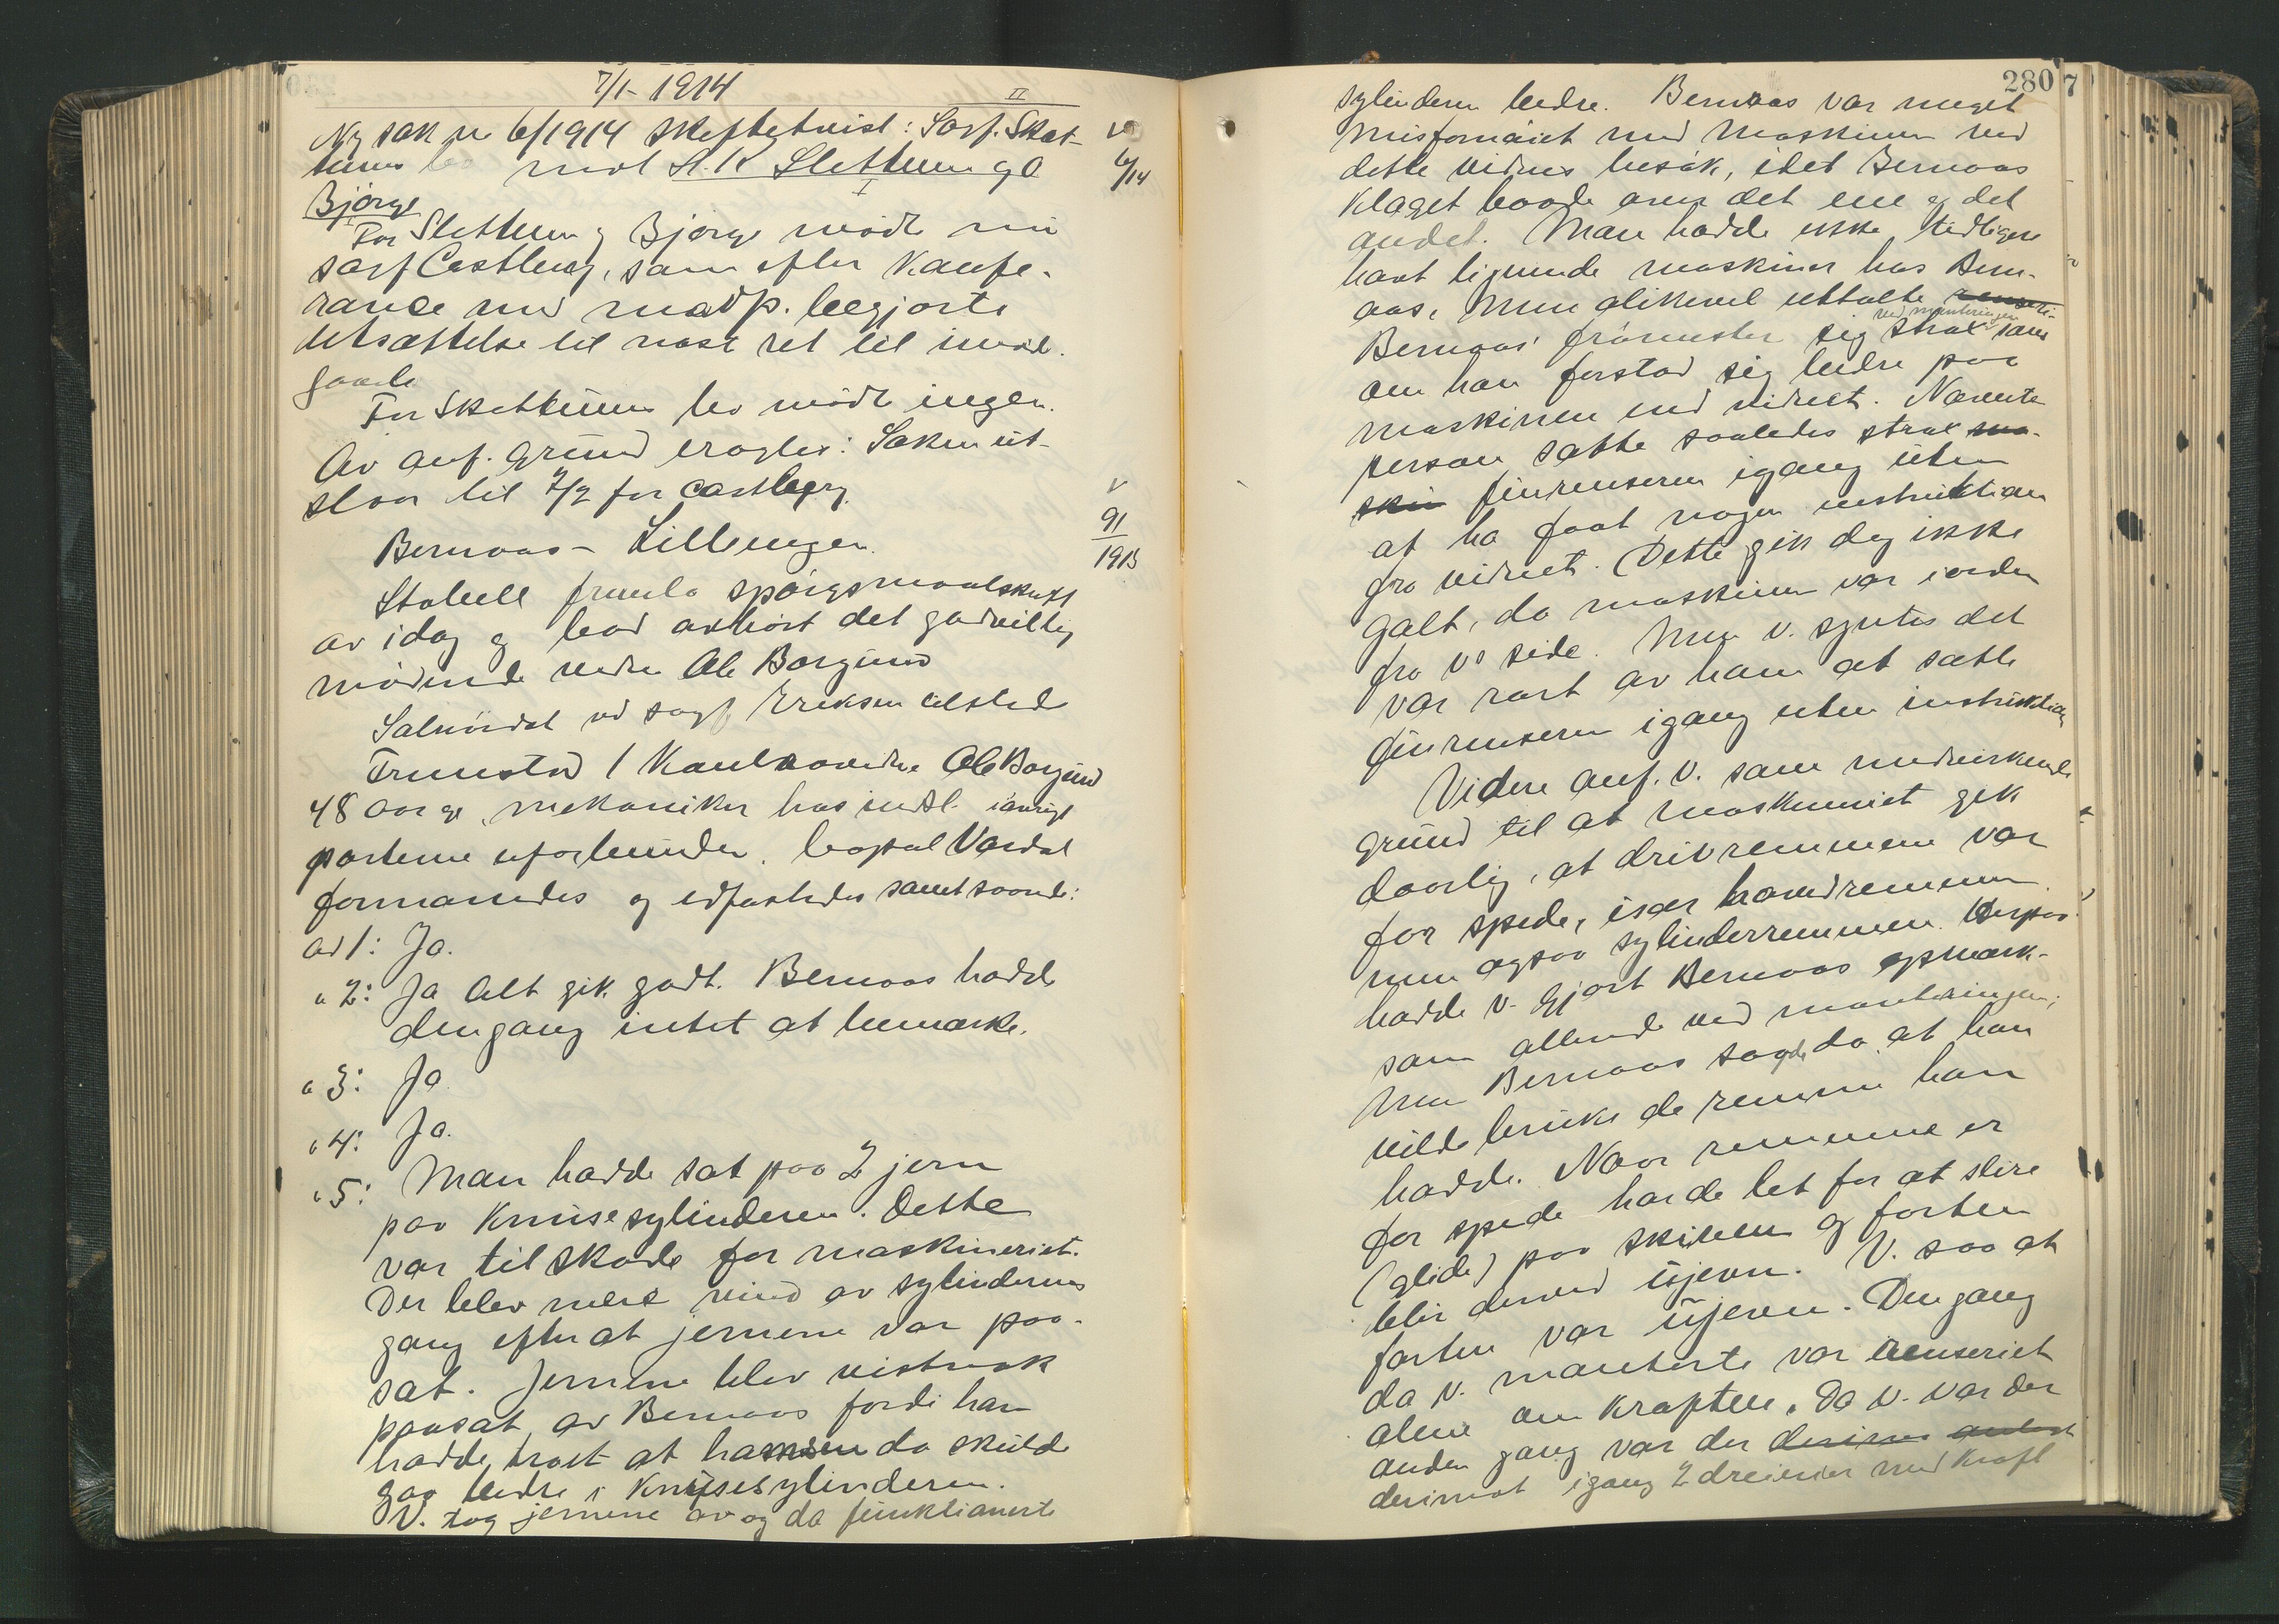 7/1 - 1914
II
Ny sak nr 6/1914 skiftetvist: Sorf. Skat-
tums bo mot A. K Slettum og O
6/14
I
Bjørge
For Slettum og Bjørge mødte nu
sorf Castberg, som efter konfe-
rance med motp. begjærte
utsættelse til næste ret til imøte-
gaaelse
For Skattums bo mødte ingen.
Av anf. grund eragtes: Saken ut-
staar til 7/2 for Castberg.
Bernaas - Lillengen.
91
1913
Stabell fremla spørgsmaalskrift
av idag og bad avhørt det godvillig
mødende vidne Ole Borgund
Salmødt ved sagf. Eriksen tilsted
Fremstod 1 Kontravidne Ole Borgund
48 aar gl, mekaniker hos indst. iøvrigt
parterne uforbunden, bopæl Vardal
formanedes og edfæstedes samt svarede:
ad 1: Ja.
" 2: Ja Alt gik godt. Bernaas hadde
dengang intet at bemærke.
" 3: Ja
" 4: Ja.
" 5: Man hadde sat paa 2 jern
paa knusesylinderen. Dette
var til skade for maskineriet.
Der blev mere vind av sylinderens
gang efter at jernene var paa-
sat. Jernene blev vistnok
paasat av Bernaas fordi han
hadde trodt at hamsen da skulde
gaa bedre i knusesylinderen.
V. tog jernene av og da funktionerte
280
7
sylinderen bedre. Bernaas var meget
misfornøiet med maskinen ved
dette vidnes besøk, idet Bernaas
klaget baade over det ene og det
andet. Man hadde ikke tidligere
havt lignende maskiner hos Bern-
aas, men alikevel uttalte
ved monteringen
Bernaas' frørenster sig strax som
om han forstod sig bedre paa
maskinen end vidnet. Nævnte
person satte saaledes strax ma-
skin finrenseren igang uten
at ha faat nogen instruktion
fra vidnet. Dette gik dog ikke
galt, da maskinen var iorden
fra v's side. Men v. syntes det
var rart av ham at sætte
finrenseren igang uten instruktion
Videre anf. v. som medvirkende
grund til at maskineriet gik
daarlig, at drivremmene var
for spede, især hovedremmen
men ogsaa sylinderremmen. Herpaa
hadde v. gjort Bernaas opmerk-
som allerede ved monteringen;
men Bernaas sagde da at han
vilde bruke de remme han
hadde. Naar remmene er
for spede har de let for at slire
(glide) paa skiven og farten
blir derved ujevn. V. saa at
farten var ujevn. Den gang
da v. monterte var renseriet
alene om kraften. Da v. var der
anden gang var der
derimot igang 2 dreierier med kraft